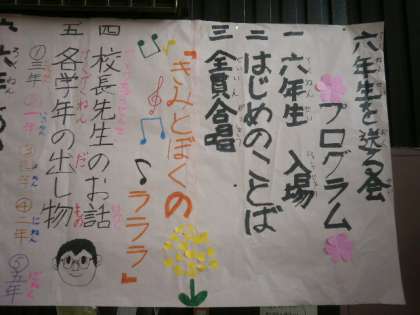 六年生を送る会
プログラム
一 六年生 入場
二 はじめのことば
三 全員合唱
『きみとぼくの
ラララ』
四 校長先生のお話
五 各学年の出し物
①三年 ②一年 ③ 年 ④二年 ⑤五年
六 六年